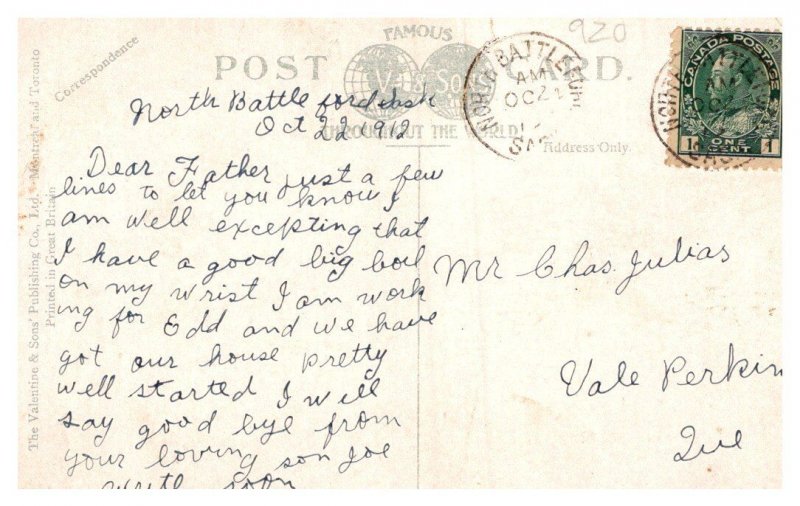 920
FAMOUS
POST CARD.
V&Sons
THROUGHOUT THE WORLD
Correspondence
Address Only.
The Valentine & Sons' Publishing Co., Ltd. Montreal and Toronto
Printed in Great Britain
NORTH BATTLEFORD
AM
OC 22
SASK
CANADA POSTAGE
1 1
ONE
CENT
North Battleford Sask
Oct 22 1912
Dear Father just a few
lines to let you know I
am well excepting that
I have a good big boil
on my wrist I am work
ing for Edd and we have
got our house pretty
well started I will
say good bye from
your loving son Joe
write soon
Mr Chas. Julias
Vale Perkin
Que